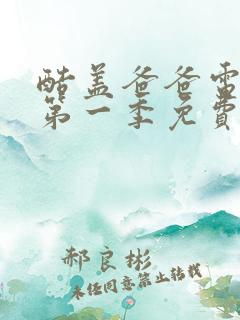 酷盖爸爸雷
第一季免费
郝良彬
未经同意禁止转载